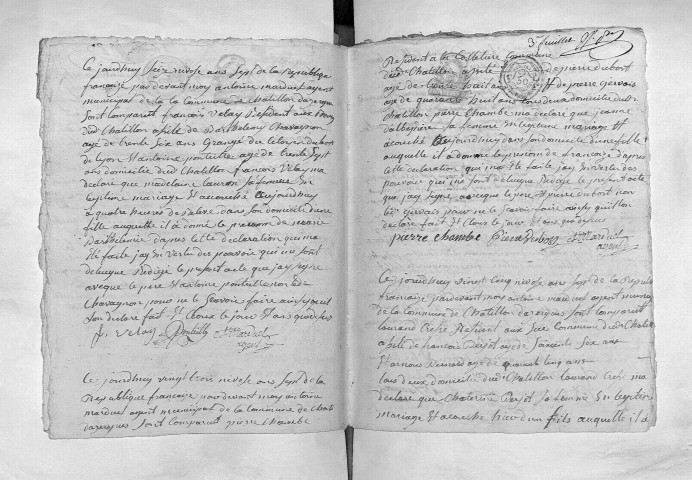 Ce jourdhuy seize nivose ans sept de la republique
françoize par devant moy antoine marduel agent
municipal de la commune de Chatillon dazergue
sont comparut françois Velay Resident aux bourg
dud Chatillon asisté de Barthelemy Chavagnon
agé de trente six ans Granger du Citoyen dubost
de Lyon Et antoine ponteille agé de trente sept
ans domicilié dud Chatillon francois Velay ma
declare que madelaine lauron sa femme En
legitime mariage Et acouché aujourdhuy
a quatre heures de dans son domicile dune
fille auquelle il a donné le prenom de marie
Barthelemie dapres cette declaration qui ma
Ete faite jay En Vertu des pouvoir qui me sont
delegué Redigé le present acte que jay signe
avecque le pere Et antoine ponteille non led
Chavagnon pour ne le Scavoir faire ainsy quil
son declare fait Et Clos le jour Et ans que dessus
f. velay Ponteille Marduel
agent
Ce jourdhuy vingt trois nivose ans sept de la
Republique françoize par devant moy antoine
marduel agent municipal de la Commune de Chatil
dazergues sont comparut pierre Chambe
3e feuillet
Resident a la Colleture Commune
dud Chatillon asisté de pierre dubost
agé de trente huit ans Et de pierre gervais
agé de quarante huit ans tous deux domicilié dud
Chatillon pierre Chambe ma declare que jeanne
sa femme En legitime mariage Et
acouché aujourdhuy dans son domicile dune fille
auquelle il a donné le prenom de françoize dapres
cette declaration qui ma Ete faite jay En Vertu des
pouvoir qui me sont delegué Redigé le present acte
que jay signe avecque le pere Et pierre dubost non
led gervais pour ne le Savoir faire ainsy quil son
declare fait Et Clos le jour Et ans que dessus
pierre chambe Pierre Dubost Marduel
agent
Ce jourdhuy vingt Cinq nivose ans sept de la Republi
francoize par devant moy antoine marduel agent municip
de la Commune de Chatillon dazergues sont Comparut
laurand Resident aux Commune dud Chatill
asisté de francois agé de Soixante six ans
Et arnoux Bernard agé de quarante Cinq ans
tous deux domicilié dud Chatillon laurand ma
declare que Chaterine sa femme En legitime
mariage Et acouche dun fils auquelle il a